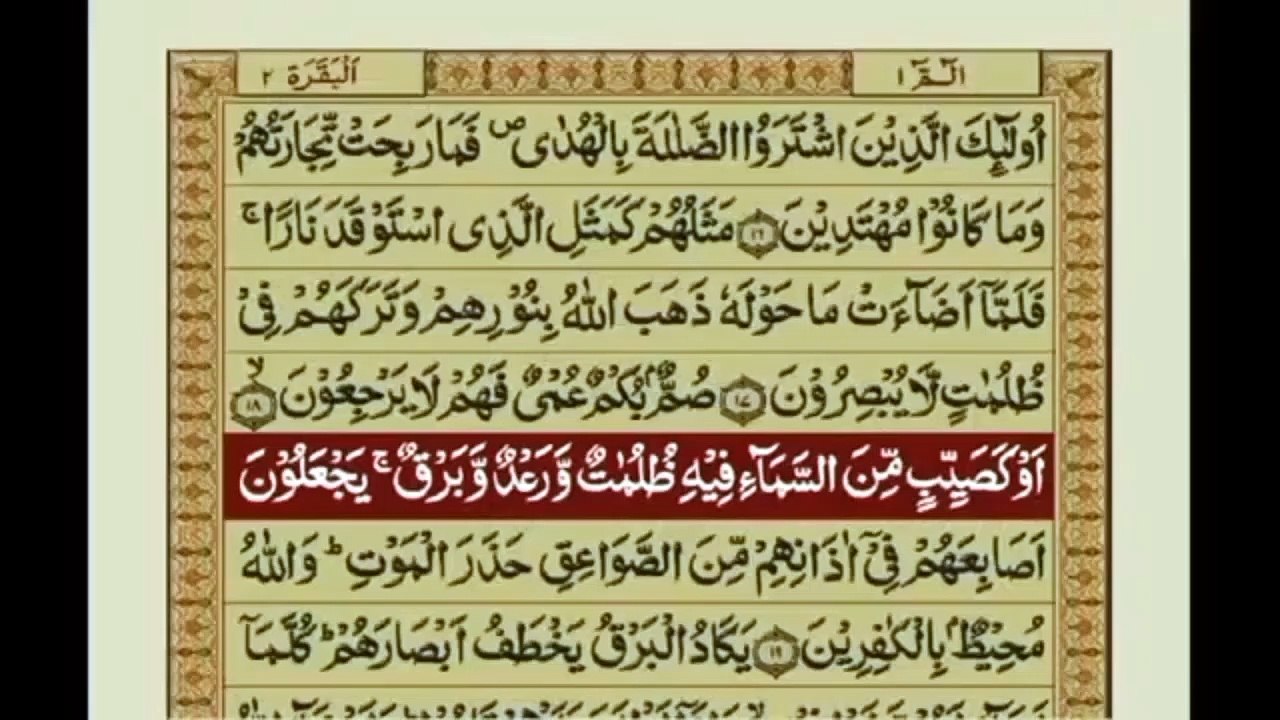 الٓمّٓ ١
اَلْبَقَرَة ٢
اُولٰٓئِكَ الَّذِيْنَ اشْتَرَوُا الضَّلٰلَةَ بِالْهُدٰى ۖ فَمَا رَبِحَتْ تِّجَارَتُهُمْ
وَمَا كَانُوْا مُهْتَدِيْنَ ١٦ مَثَلُهُمْ كَمَثَلِ الَّذِى اسْتَوْقَدَ نَارًا ۚ
فَلَمَّآ اَضَآءَتْ مَا حَوْلَهٗ ذَهَبَ اللّٰهُ بِنُوْرِهِمْ وَتَرَكَهُمْ فِيْ
ظُلُمٰتٍ لَّا يُبْصِرُوْنَ ١٧ صُمٌّۢ بُكْمٌ عُمْىٌ فَهُمْ لَا يَرْجِعُوْنَ ۙ ١٨
اَوْ كَصَيِّبٍ مِّنَ السَّمَآءِ فِيْهِ ظُلُمٰتٌ وَّرَعْدٌ وَّبَرْقٌ ۚ يَجْعَلُوْنَ
اَصَابِعَهُمْ فِيْٓ اٰذَانِهِمْ مِّنَ الصَّوَاعِقِ حَذَرَ الْمَوْتِ ؕ وَاللّٰهُ
مُحِيْطٌۢ بِالْكٰفِرِيْنَ ١٩ يَكَادُ الْبَرْقُ يَخْطَفُ اَبْصَارَهُمْ ؕ كُلَّمَآ